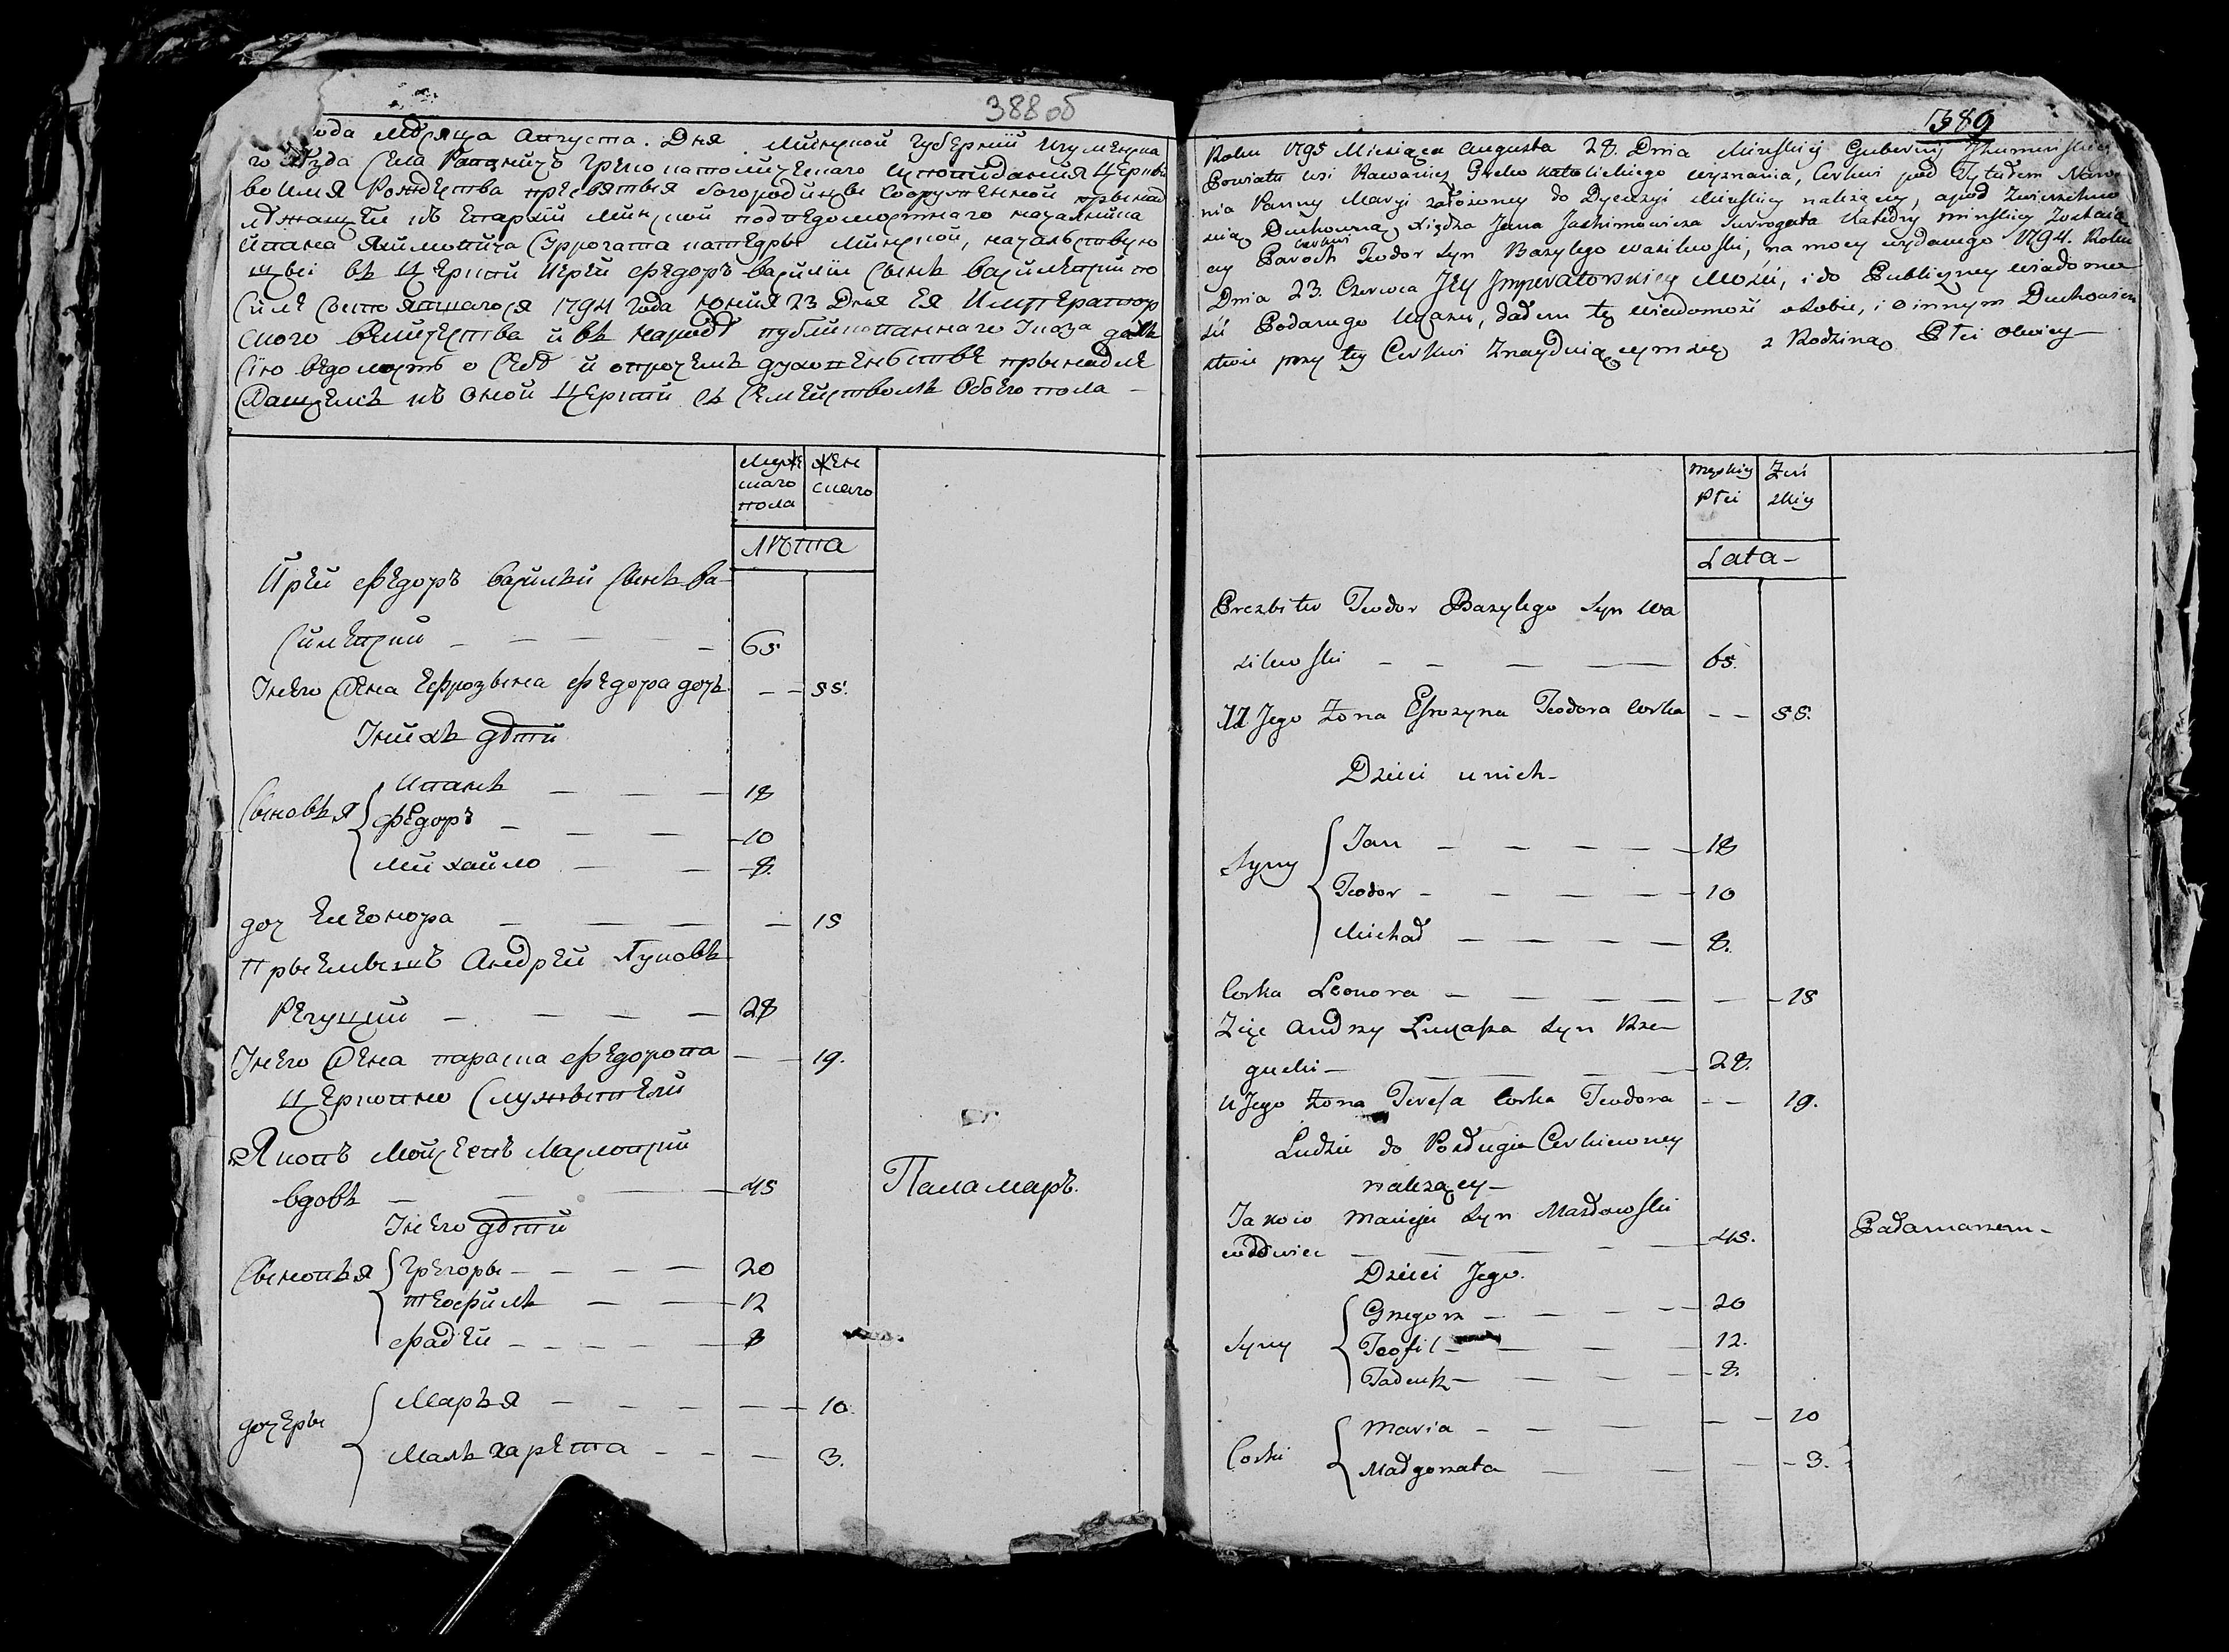 388об
года Мѣсяца Августа. Дня . Минской Губерніи Игуменска
го уѣзда Села Раваницъ Греко католическаго исповиданія Церкви
во имя Рождества пресвятыя богородицы Сооруженной принад
лѣжащей къ Епархіи Минской подведомортнаго началника
Ивана Якимовича Суррогата катедры Минской, началствую
щеі въ Церкви Иерей Федоръ василіи Сынъ василевский по
силѣ Состоявшагося 1794 Года юнія 23 Дня Ея Император
ского величества и въ народѣ публикованнаго Указа далъ
Сію ведомость о Себѣ и опрочемъ духовенствѣ принадлѣ
жащемъ къ Оной Церкви съ Семействомъ Обоего пола
Муже скаго пола
Жен скаго
лѣта
Иреи Федоръ василѣи Сынъ ва-
силевский 65
Унего жена Ефрозына Федора дочъ 55.
Унихъ дѣти
Сыновъя
Иванъ 18
Федоръ 10
Михайло 8.
доч Елеонора 15
Прыемышъ Андрей Луковъ
Регуцкий 28
Унего жена параска Федорова 19.
Церковно Служытели
Яковъ Мойсеевъ Масловский
вдовъ 45 Паламаръ.
Унего дѣти
Сыновъя
Грегоры 20
Теофилъ 12
Фадѣи 8
дочеры
Маръя 10.
Малъхарета 3.
389
Roku 1795 Miesiąca Augusta 28. Dnia Minskiey Gubernij Jhumenskiego
Powiatu wsi Rawanicz Greko katolickiego wyznania, Cerkwi pod Tytułem Naro
nia Panny Maryi założoney do Dyecezyi Minskiey należący, a pod Zwierzchno
scią Duchowną Xiędza Jana Jachimowicza Surrogata Katedry minskiey Zostaią
cy cerkwi Paroch Teodor syn Bazylego wasilewski, na mocy wydanego 1794. Roku
Dnia 23. Czerwca Jey Jmperatorskiey Mości, i do Publiczney wiadomo
ści Podanego Ukazu, dałem tę wiedomość o sobie, i o innym Duchowień
stwie przy tey Cerkwi Znayduiącym się z Rodziną Płci oboiey
męskiey płci
Żeń skiey
Lata
Prezbiter Teodor Bazylego syn wa
silewski 65.
U Jego Żona Efrozyna Teodora corka 55.
Dzieci u nich
Syny
Jan 18
Teodor 10
Michał 8.
Corka Leonora 15
Zięc Andrzy Lukasza syn Rze
gucki 28.
u Jego Żona Teresa Corka Teodora 19.
Ludzie do Posługi Cerkiewney
nalezący
Jakow Macieja syn Masłowski
wdowiec 45. Pałamarzem
Dzieci Jego.
Syny
Grzegorz 20
Teofil 12.
Tadeusz 8.
Corki
Maria 10
Małgorzata 3.